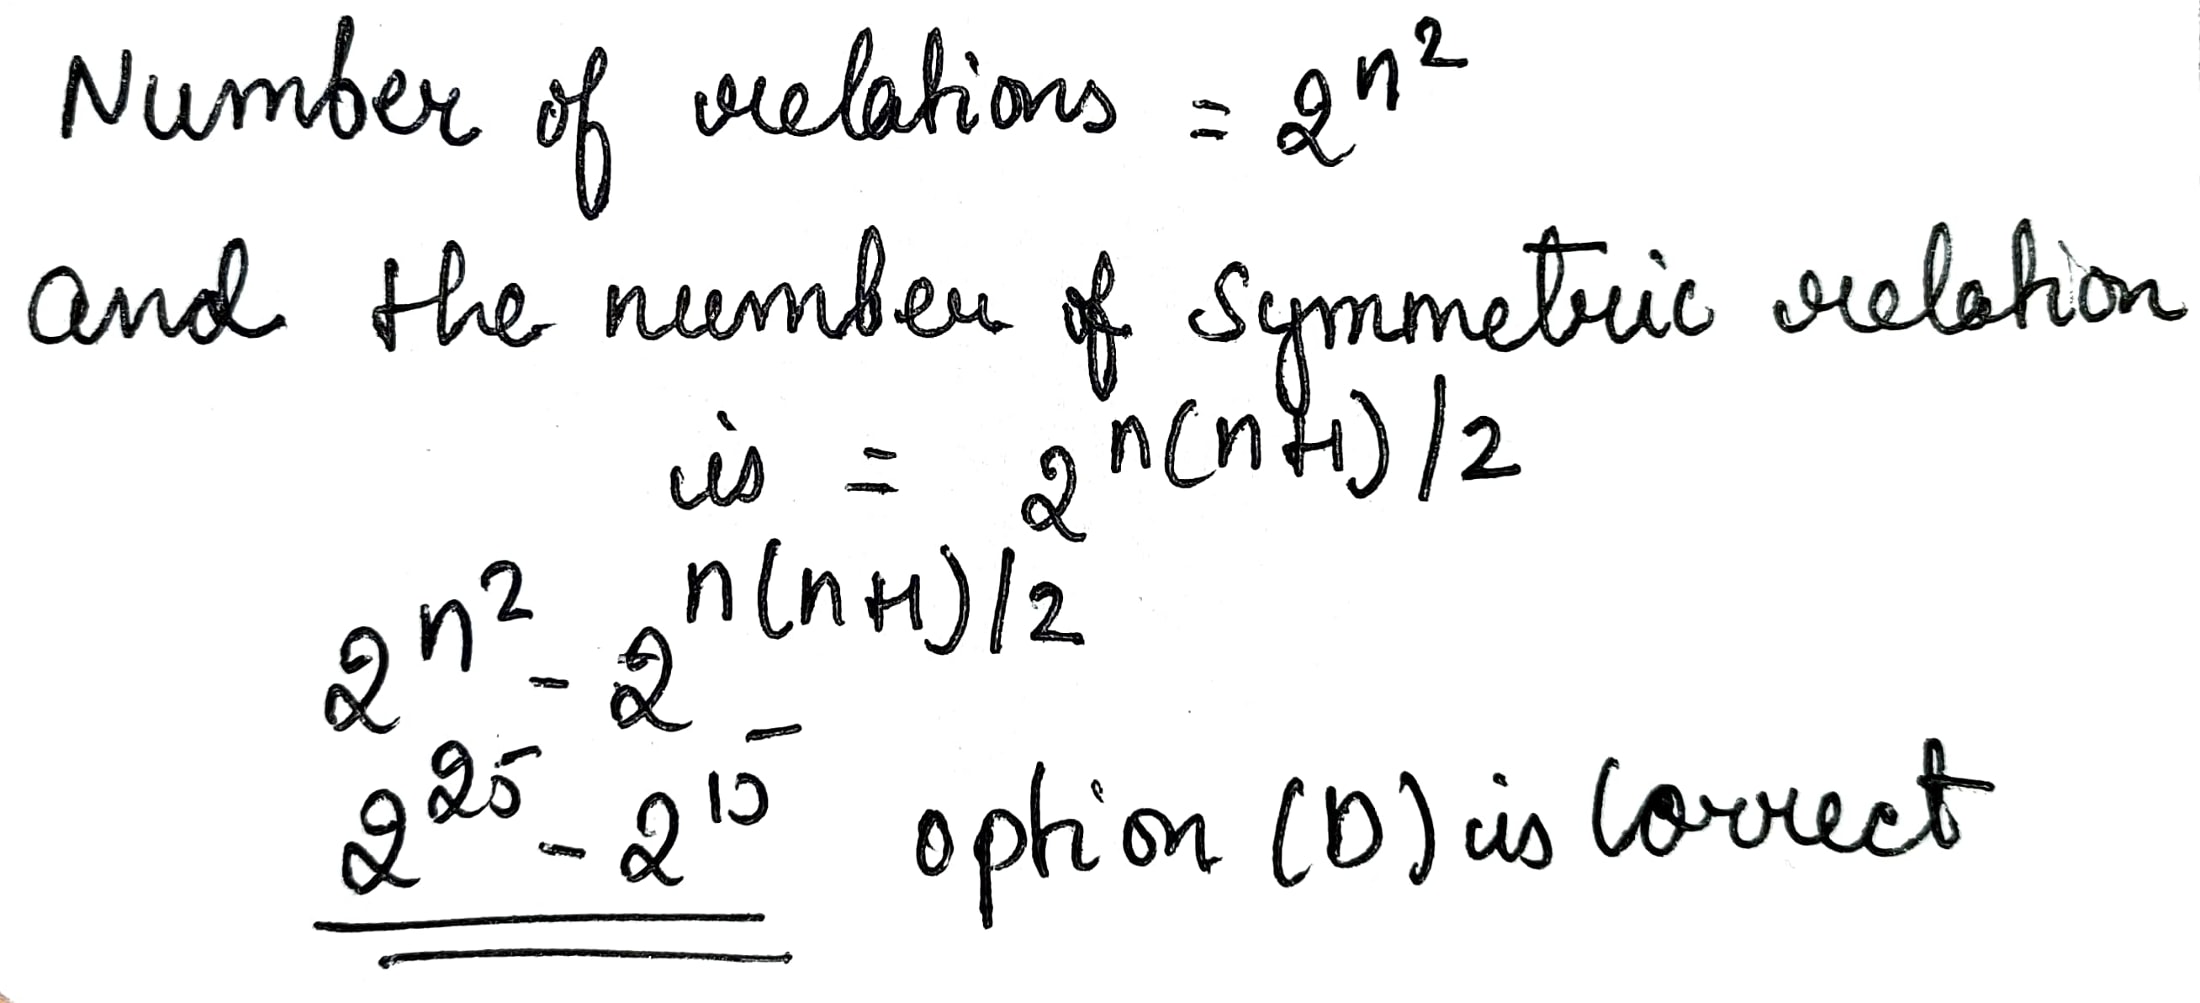 Number of relations = 2^{n^2}
and the number of symmetric relation
is = 2^{n(n+1)/2}
2^{n^2} - 2^{n(n+1)/2}
2^{25} - 2^{15} option (D) is correct